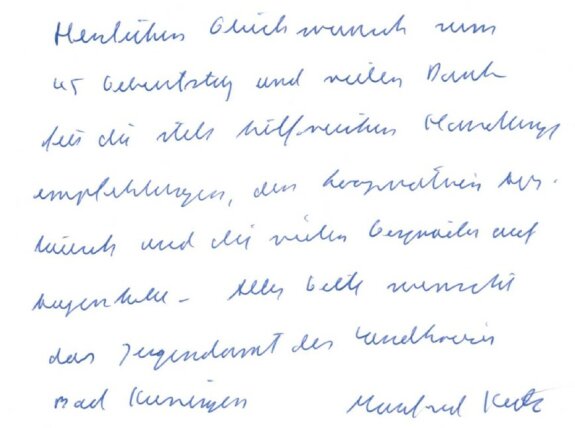 Herzlichen Glückwunsch zum
45 Geburtstag und vielen Dank
für die stets hilfreichen Handlungs
empfehlungen, den kooperativen Aus-
tausch und die vielen Gespräche auf
Augenhöhe - Alles Gute wünscht
das Jugendamt des Landkreis
Bad Kissingen Manfred